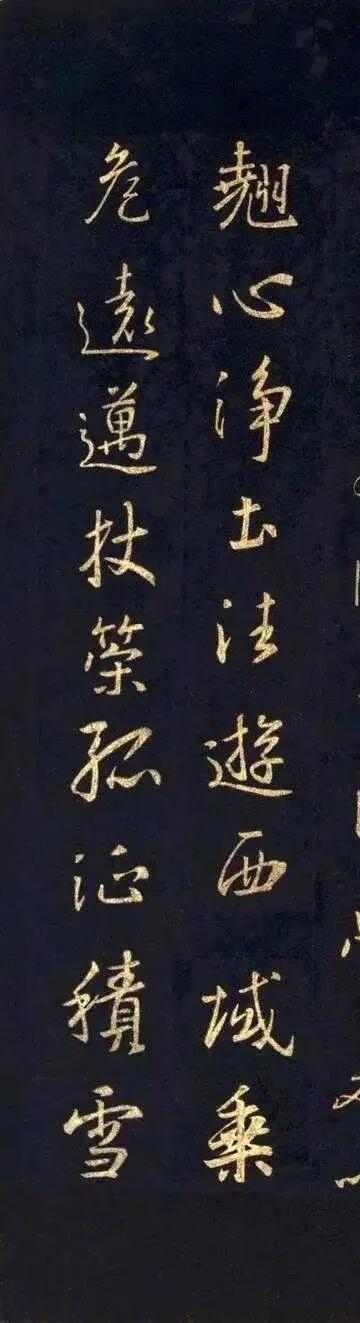 翹心淨土法遊西域乘
危遠邁杖策孤征積雪